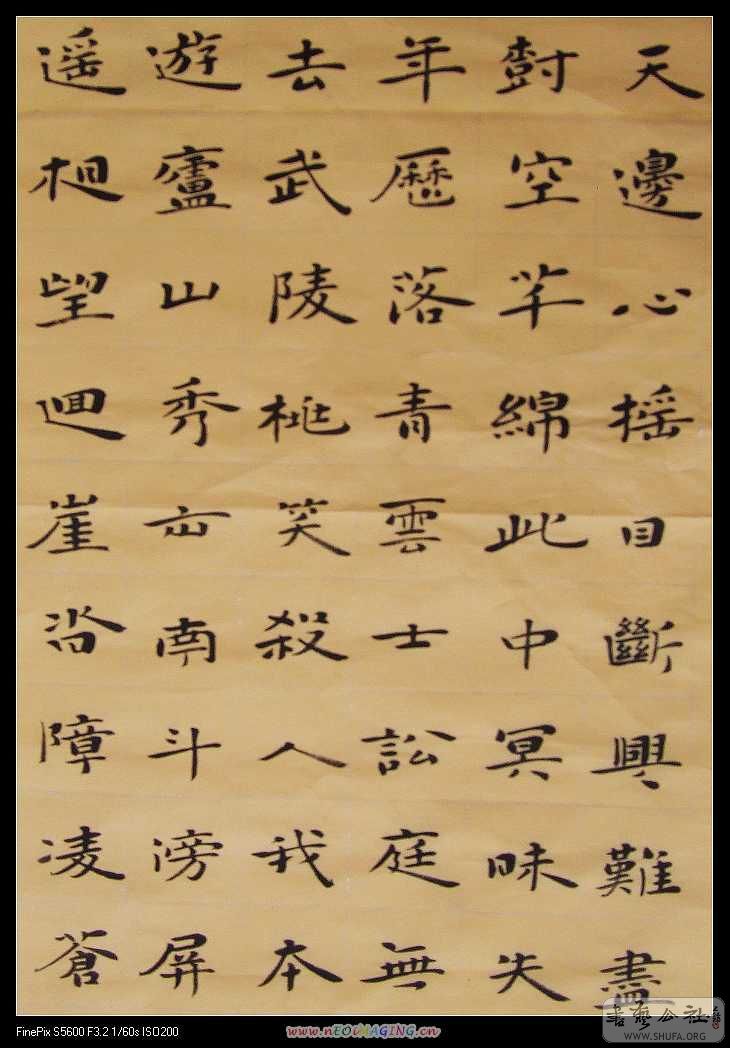 天邊心摇目斷興難盡
尌空芊綿此中冥昧失
年歷落青雲士訟庭無
去武陵桃笑殺人我本
遊廬山秀出南斗傍屏
遥相望迴崖沓障凌蒼
書藝公社
WWW.SHUFA.ORG
FinePix S5600 F3.2 1/60s ISO200
www.nEOiMAGING.cn